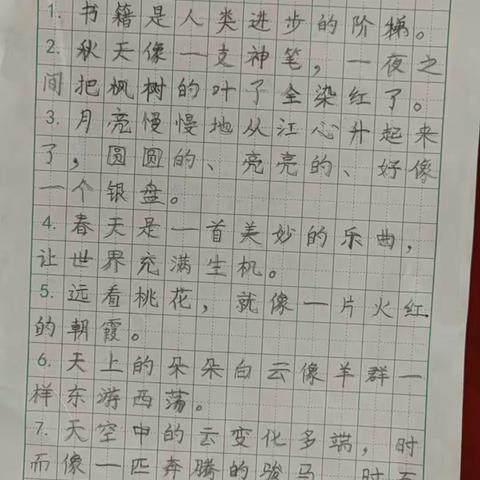 1. 书籍是人类进步的阶梯。
2. 秋天像一支神笔，一夜之
间把枫树的叶子全染红了。
3. 月亮慢慢地从江心升起来
了，圆圆的、亮亮的、好像
一个银盘。
4. 春天是一首美妙的乐曲，
让世界充满生机。
5. 远看桃花，就像一片火红
的朝霞。
6. 天上的朵朵白云像羊群一
样东游西荡。
7. 天空中的云变化多端，时
而像一匹奔腾的骏马，时而